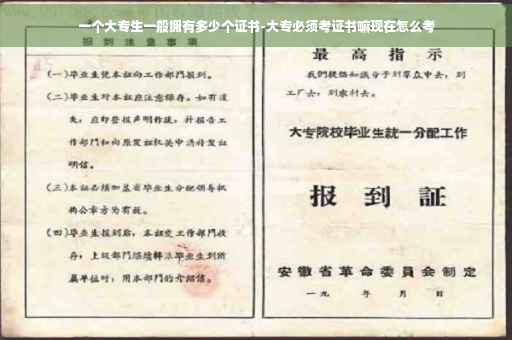 一个大专生一般拥有多少个证书-大专必须考证书嘛现在怎么考
报到注意事项
(一)毕业生凭本证向工作部门报到。
(二)毕业生对本证应注意保存。如有遗
失，应即登报声明作废，并报告工
作部门和向原发证机关申请补发证
明信。
(三)本证必须加盖省毕业生分配领导机
构公章方为有效。
(四)毕业生报到后，本证交工作部门收
存；上级部门
毕业生到所
属单位时，用本部门的介绍信。
最高指示
我们提倡知识分子到群众中去，到
工厂去，到农村去。
大专院校毕业生統一分配工作
报到証
安徽省革命委員会制定
一九 年 月 日